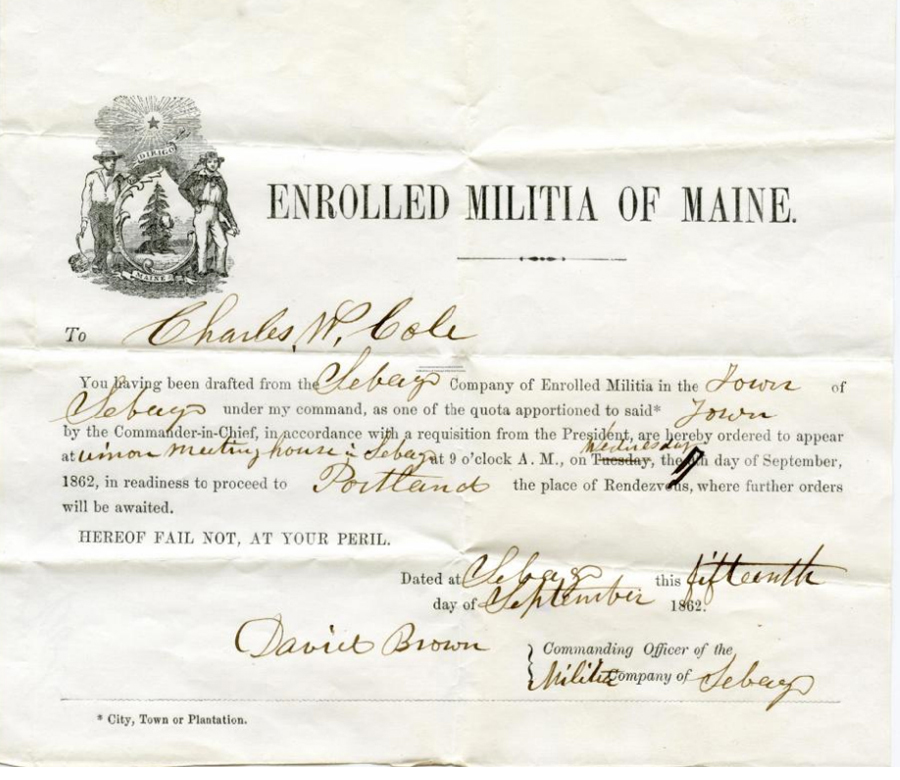 DIRIGO
MAINE
ENROLLED MILITIA OF MAINE.
To Charles, W, Cole
You having been drafted from the Sebago Company of Enrolled Militia in the Town of
Sebago under my command, as one of the quota apportioned to said* Town
by the Commander-in-Chief, in accordance with a requisition from the President, are hereby ordered to appear
Wednesday
at union meeting house in Sebago at 9 o'clock A. M., on Tuesday, the day of September,
1862, in readiness to proceed to Portland the place of Rendezvous, where further orders
will be awaited.
HEREOF FAIL NOT, AT YOUR PERIL.
Dated at Sebago this fifteenth
day of September 1862.
David Brown
Commanding Officer of the
Militia Company of Sebago
* City, Town or Plantation.